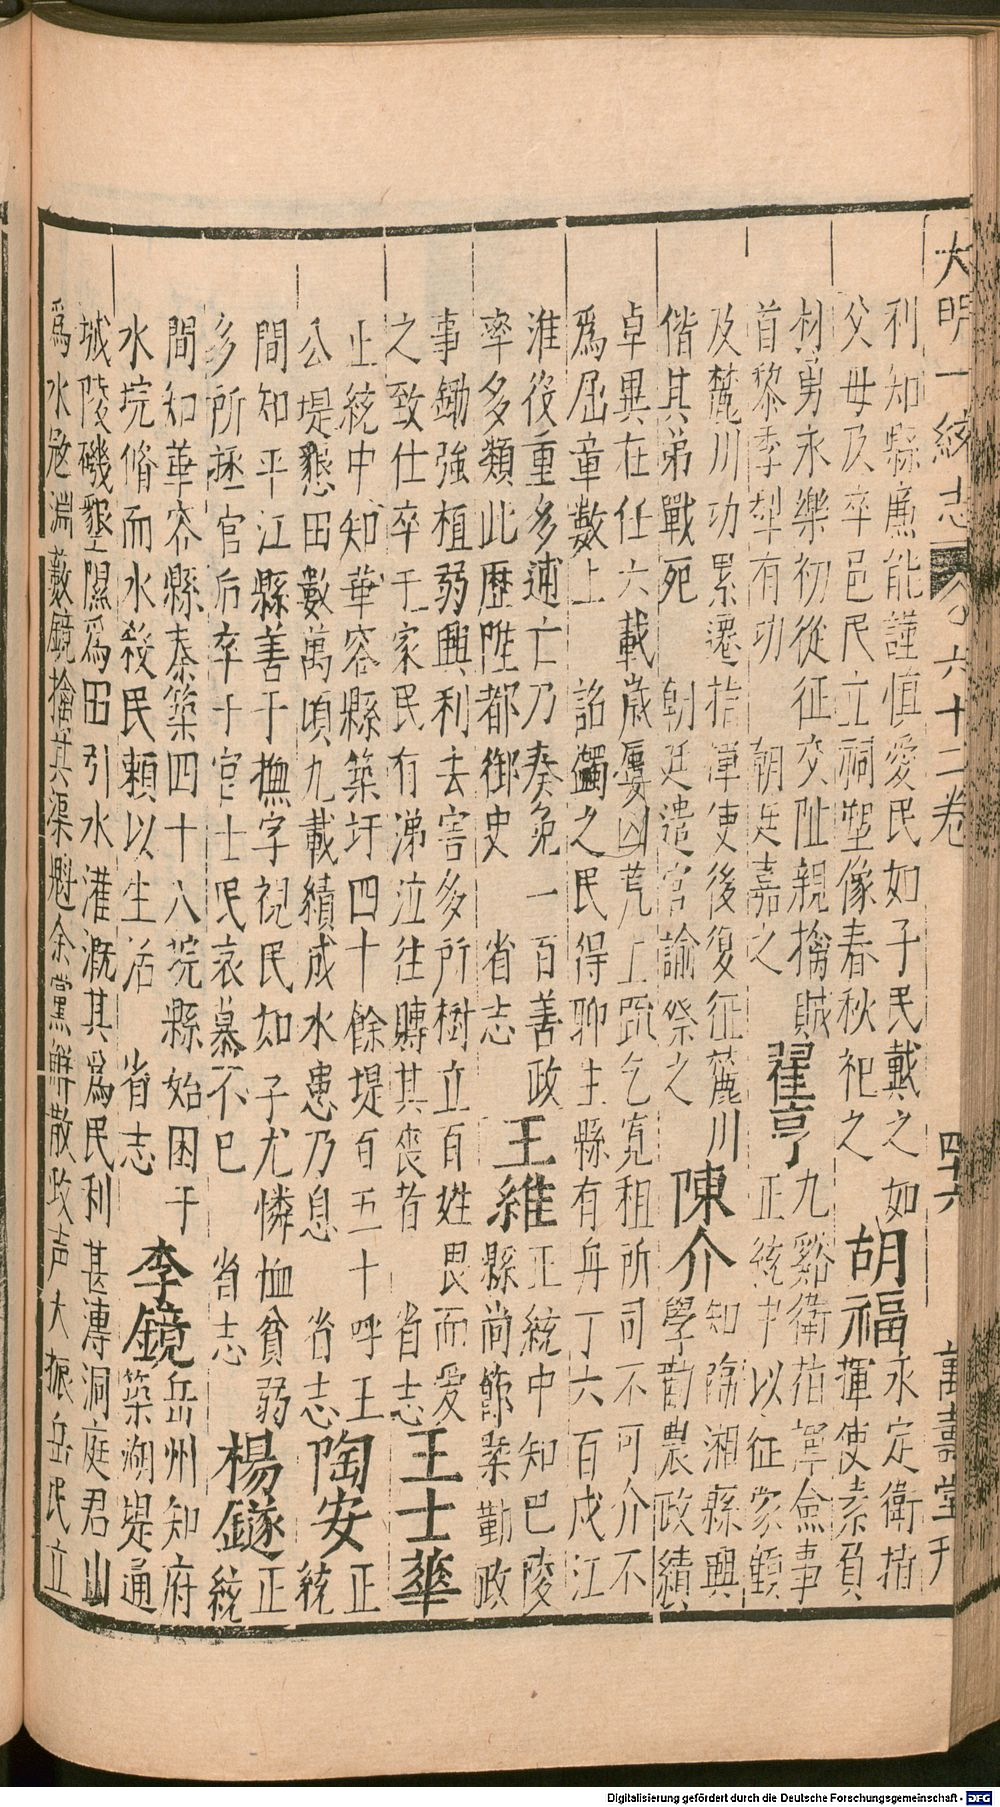 大明一統志 卷六十二卷 四十六 萬壽堂刊
利知縣廉能謹慎愛民如子民戴之如
父母及卒邑民立祠塑像春秋祀之
胡福
永定衛指
揮使素負
材勇永樂初從征交阯親擒賊
首黎季犁有功 朝廷嘉之
翟亨
九谿衛指揮僉事
正統中以征蒙顛
及麓川功累遷指揮使後復征麓川
偕其弟戰死 朝廷遣官諭祭之
陳介
知臨湘縣興
學勸農政績
卓異在任六載歲屢凶荒上䟽乞寬租所司不可介不
爲屈章數上 詔蠲之民得聊生縣有舟丁六百戍江
淮役重多逋亡乃奏免一百善政
率多類此歷陞都御史 省志
王維
正統中知巴陵
縣尚節槩勤政
事鋤強植弱興利去害多所樹立百姓畏而愛
之致仕卒于家民有涕泣往賻其喪者 省志
王士華
止統中知華容縣築圩四十餘堤百五十呼王
公堤懇田數萬頃九載績成水患乃息 省志
陶安
正
統
間知平江縣善于撫字視民如子尤憐恤貧弱
多所拯官后卒于官士民哀慕不已 省志
楊鐩
正
統
間知華容縣奏築四十八垸縣始困于
水垸脩而水殺民賴以生活 省志
李鏡
岳州知府
築湖堤通
城陵磯墾隰爲田引水灌溉其爲民利甚溥洞庭君山
爲水寇淵藪鏡擒其渠魁余黨解散政声大振岳民立
Digitalisierung gefördert durch die Deutsche Forschungsgemeinschaft - DFG